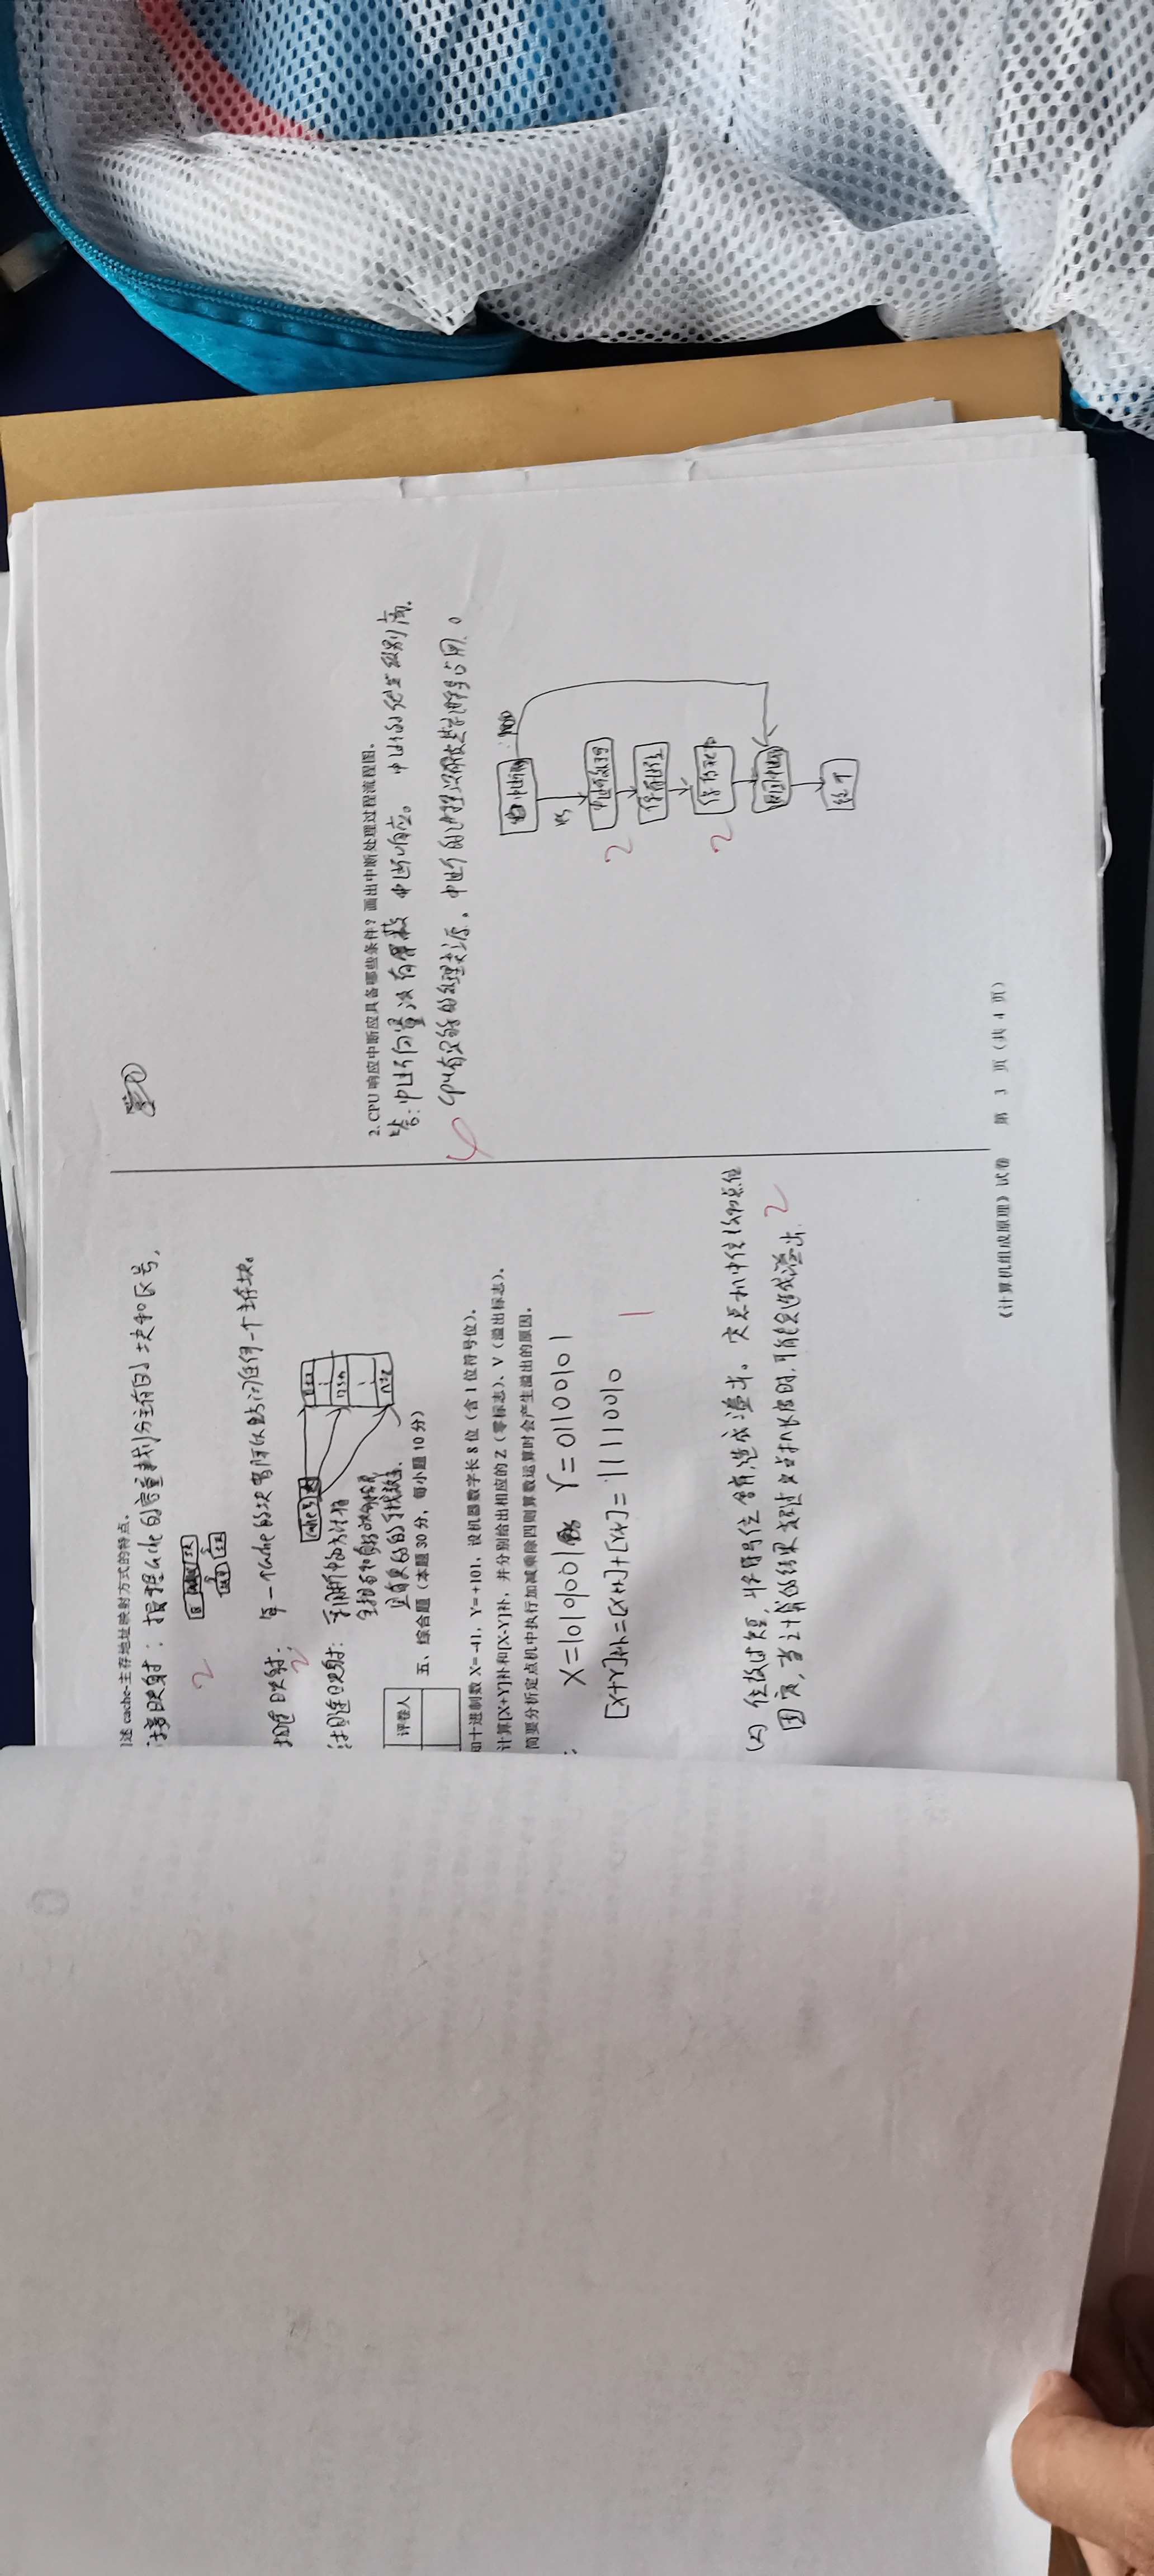 述 cache-主存地址映射方式的特点。
接映射：根据cache的容量来划分主存的块和区号，
区 块
块
2
相连映射：每一个cache的块都可以访问任何一个主存块。
2
cache号
相连映射：采用折中的方法将
全相联和直接映射
具有更好的寻找效率.
评卷人
五、综合题（本题 30 分，每小题 10 分）
知十进制数 X= -41，Y= +101，设机器数字长 8 位（含 1 位符号位）。
计算[X+Y]补和[X-Y]补，并分别给出相应的 Z（零标志）、V（溢出标志）。
简要分析定点机中执行加减乘除四则算数运算时会产生溢出的原因。
X=10101001 Y=01100101
[X+Y]补=[X补]+[Y补]=11110010
1
(2) 位数过短，将符号位舍弃，造成溢出。定点机中位
固定，当计算的结果超过定点机长度时，可能会造成溢出.
2
2. CPU 响应中断应具备哪些条件？画出中断处理过程流程图。
答：中断向量没有屏蔽 中断响应。 中断的优先级别高.
CPU有足够的处理资源。中断的进程没有被其它进程占用。
yes
中断处理
2
2
返回中断
终开
《计算机组成原理》试卷 第 3 页（共 4 页）